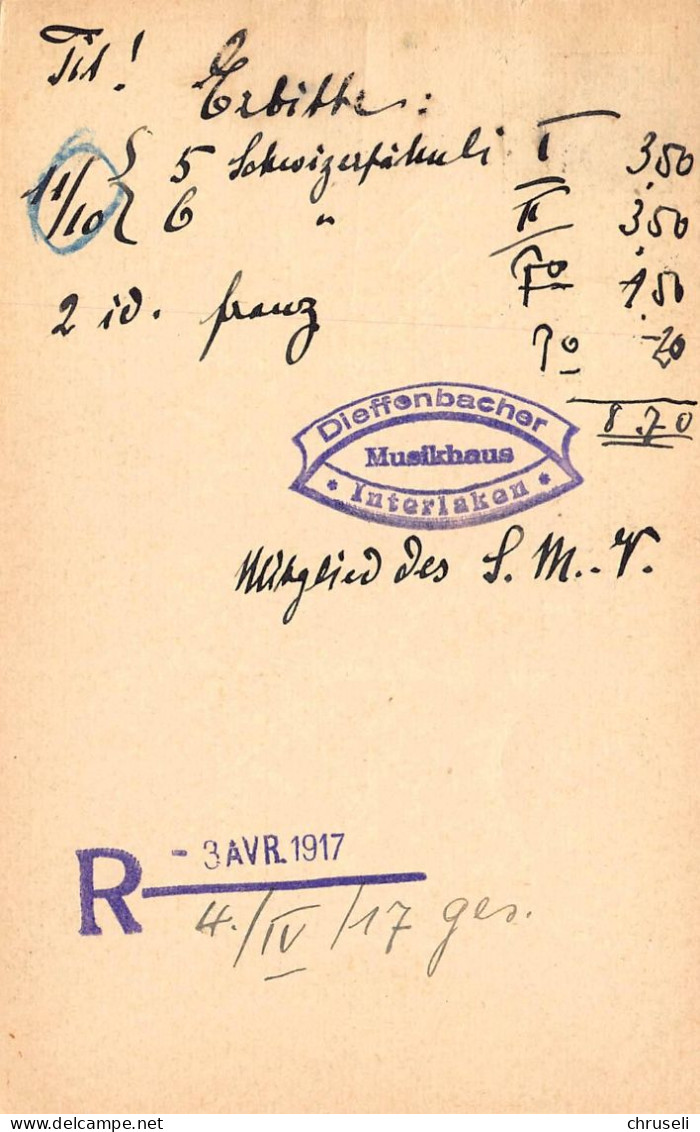 Tit!
Erbitte:
11/10 { 5 Schwizerfähnli I 3,50
6 " II 3,50
70 1,50
2 id. franz 70 -20
8.70
Dieffenbacher
Musikhaus
* Interlaken *
Mitglied des S. M.-V.
- 3 AVR. 1917
R
4./IV/17 ges.
delcampe.net
chruseli